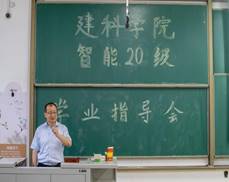 建科学院
智能20级
学业指导会